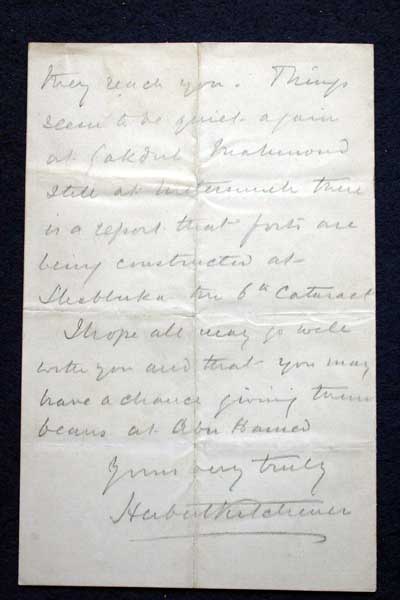 they reach you. Things
seem to be quiet again
at Gakdul Mahmoud
still at Metemmeh there
is a report that forts are
being constructed at
Shabluka the 6th Cataract
I hope all may go well
with you and that you may
have a chance giving them
beans at Abu Hamed
Yours very truly
Herbert Kitchener